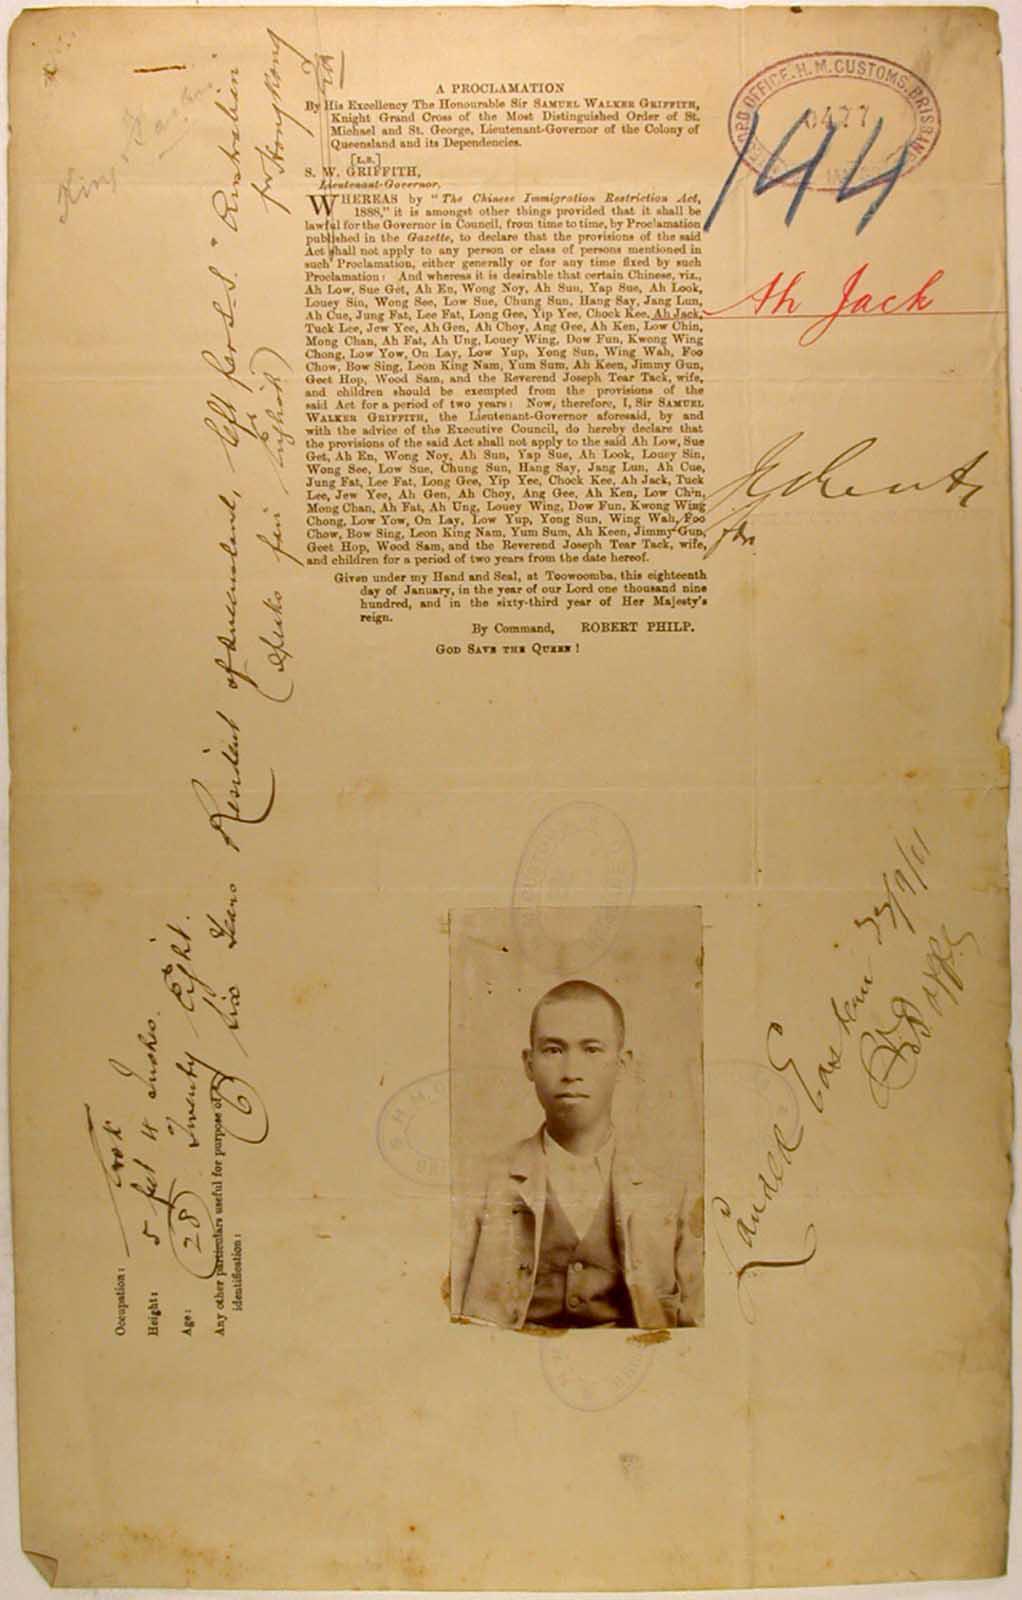 A PROCLAMATION
By His Excellency The Honourable Sir SAMUEL WALKER GRIFFITH,
Knight Grand Cross of the Most Distinguished Order of St.
Michael and St. George, Lieutenant-Governor of the Colony of
Queensland and its Dependencies.
[L.S.]
S. W. GRIFFITH,
Lieutenant-Governor.
WHEREAS by "The Chinese Immigration Restriction Act,
1888," it is amongst other things provided that it shall be
lawful for the Governor in Council, from time to time, by Proclamation
published in the Gazette, to declare that the provisions of the said
Act shall not apply to any person or class of persons mentioned in
such Proclamation, either generally or for any time fixed by such
Proclamation: And whereas it is desirable that certain Chinese, viz.,
Ah Low, Sue Get, Ah En, Wong Noy, Ah Sun, Yap Sue, Ah Look,
Louey Sin, Wong See, Low Sue, Chung Sun, Hang Say, Jang Lun,
Ah Cue, Jung Fat, Lee Fat, Long Gee, Yip Yee, Chock Kee, Ah Jack,
Tuck Lee, Jew Yee, Ah Gen, Ah Choy, Ang Gee, Ah Ken, Low Chin,
Mong Chan, Ah Fat, Ah Ung, Louey Wing, Dow Fun, Kwong Wing
Chong, Low Yow, On Lay, Low Yup, Yong Sun, Wing Wah, Foo
Chow, Bow Sing, Leon King Nam, Yum Sum, Ah Keen, Jimmy Gun,
Geet Hop, Wood Sam, and the Reverend Joseph Tear Tack, wife,
and children should be exempted from the provisions of the
said Act for a period of two years: Now, therefore, I, Sir SAMUEL
WALKER GRIFFITH, the Lieutenant-Governor aforesaid, by and
with the advice of the Executive Council, do hereby declare that
the provisions of the said Act shall not apply to the said Ah Low, Sue
Get, Ah En, Wong Noy, Ah Sun, Yap Sue, Ah Look, Louey Sin,
Wong See, Low Sue, Chung Sun, Hang Say, Jang Lun, Ah Cue,
Jung Fat, Lee Fat, Long Gee, Yip Yee, Chock Kee, Ah Jack, Tuck
Lee, Jew Yee, Ah Gen, Ah Choy, Ang Gee, Ah Ken, Low Chin,
Mong Chan, Ah Fat, Ah Ung, Louey Wing, Dow Fun, Kwong Wing
Chong, Low Yow, On Lay, Low Yup, Yong Sun, Wing Wah, Foo
Chow, Bow Sing, Leon King Nam, Yum Sum, Ah Keen, Jimmy Gun,
Geet Hop, Wood Sam, and the Reverend Joseph Tear Tack, wife,
and children for a period of two years from the date hereof.
Given under my Hand and Seal, at Toowoomba, this eighteenth
day of January, in the year of our Lord one thousand nine
hundred, and in the sixty-third year of Her Majesty's
reign.
By Command, ROBERT PHILP.
GOD SAVE THE QUEEN!
OFFICE. H.M. CUSTOMS, BRISBANE
0477
144
Ah Jack
for
Occupation: Cook
Height: 5 feet 4 Inches.
Age: (28) Twenty Eight.
Any other particulars useful for purpose of
identification:
(6) Six Years Resident of Queensland, left per S.S. "Australian"
for Hongkong
(Speaks fair English)
Landed Eastern